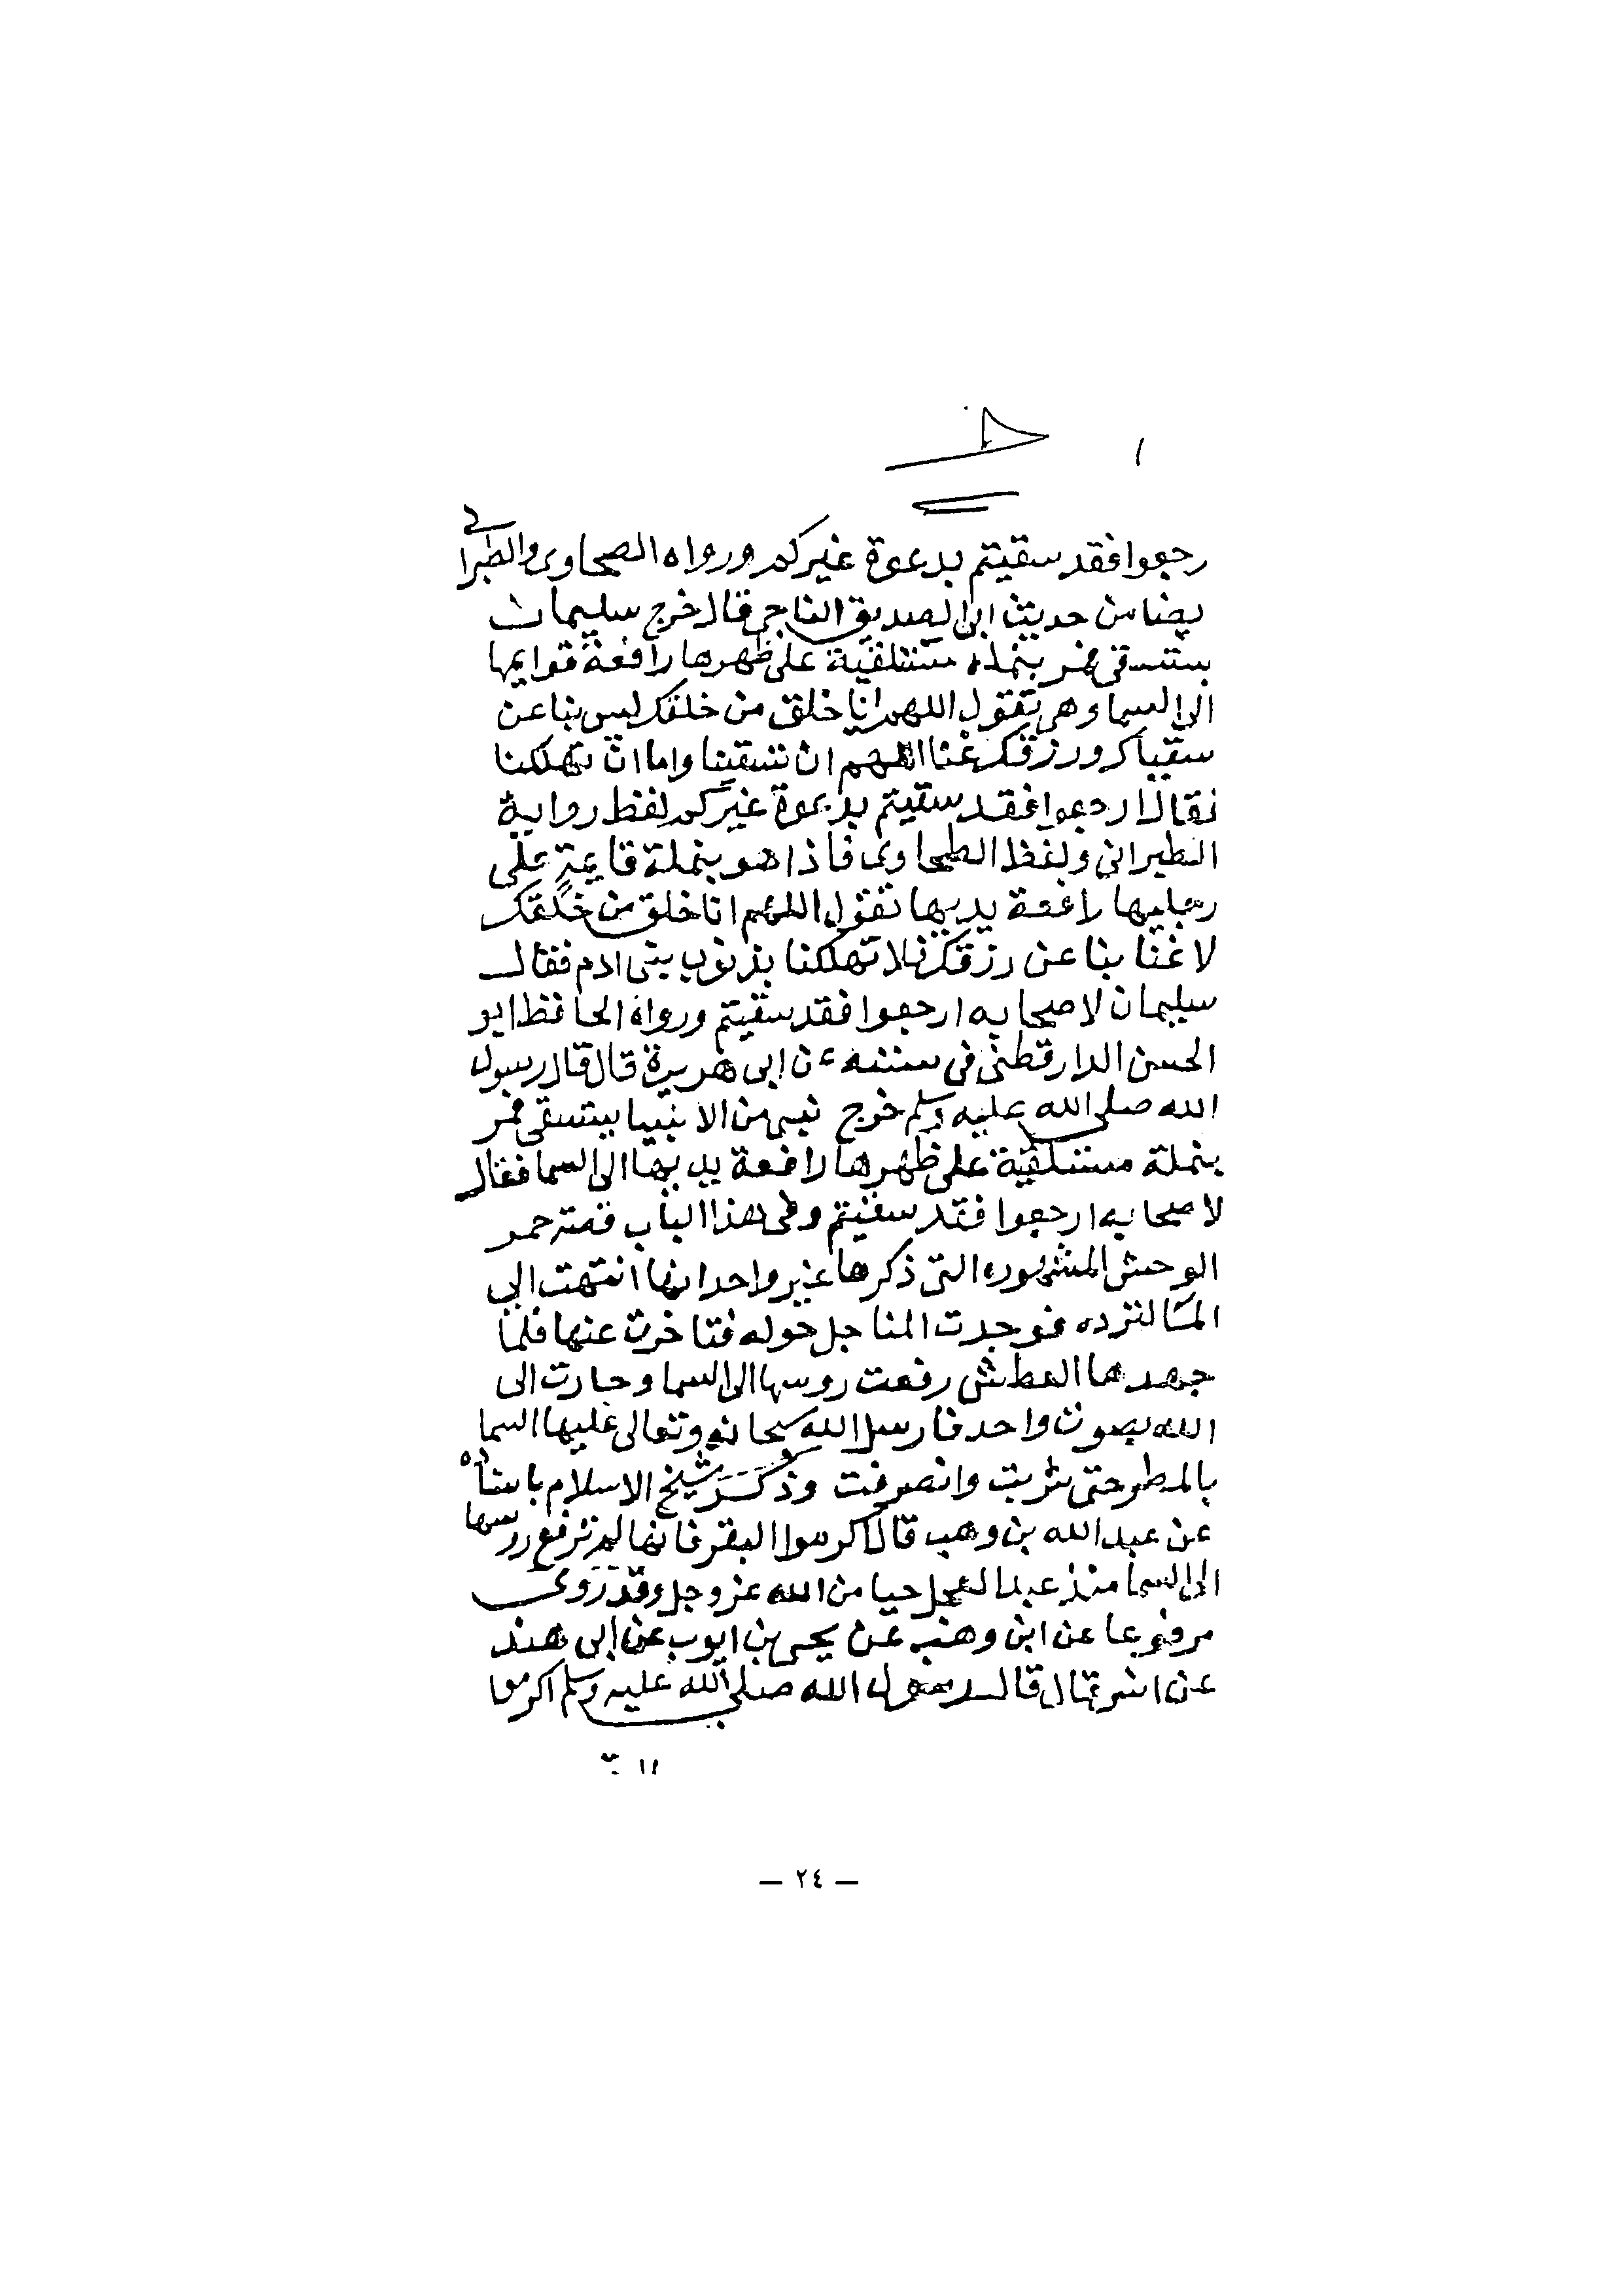 رجعوا فقد سقيتم بدعوة غيركم ورواه الصحاوى والطبرانى
يضا من حديث ابى الصديق الناجى قال خرج سليمان
يستسقى فمر بنملة مستلقية على ظهرها رافعة قوايمها
الى السما وهى تقول اللهم انا خلق من خلقك ليس بنا عن
سقياك ورزقك غنا اللهم ان تسقينا واما ان تهلكنا
فقال ارجعوا فقد سقيتم بدعوة غيركم لفظ رواية
الطبرانى ولفظ الطحاوى فاذا هو بنملة قايمة على
رجليها رافعة يديها تقول اللهم انا خلق من خلقك
لا غنا بنا عن رزقك فلا تهلكنا بذنوب بنى ادم فقال
سليمان لاصحابه ارجعوا فقد سقيتم ورواه الحافظ ابو
الحسن الدارقطنى فى سننه عن ابى هريرة قال قال رسول
الله صلى الله عليه وسلم خرج نبى من الانبيا يستسقى فمر
بنملة مستلقية على ظهرها رافعة يديها الى السما فقال
لاصحابه ارجعوا فقد سقيتم وفى هذا الباب قصة حمر
الوحش المشهوره التى ذكرها غير واحد انها انتهت الى
الما لترده فوجدت المناجل حوله فتاخرت عنها فلما
جهدها العطش رفعت روسها الى السما وجارت الى
الله بصوت واحد فارسل الله سبحانه وتعالى عليها السما
بالمطر حتى شربت وانصرفت وذكر شيخ الاسلام باسناده
عن عبدالله بن وهب قال اكرموا البقر فانها لم ترفع روسها
الى السما منذ عبد العجل حيا من الله عز وجل وقد روى
مرفوعا عن ابن وهب عن يحيى بن ايوب عن ابى هند
عن انس قال قال رسول الله صلى الله عليه وسلم اكرموا
— ٢٤ —